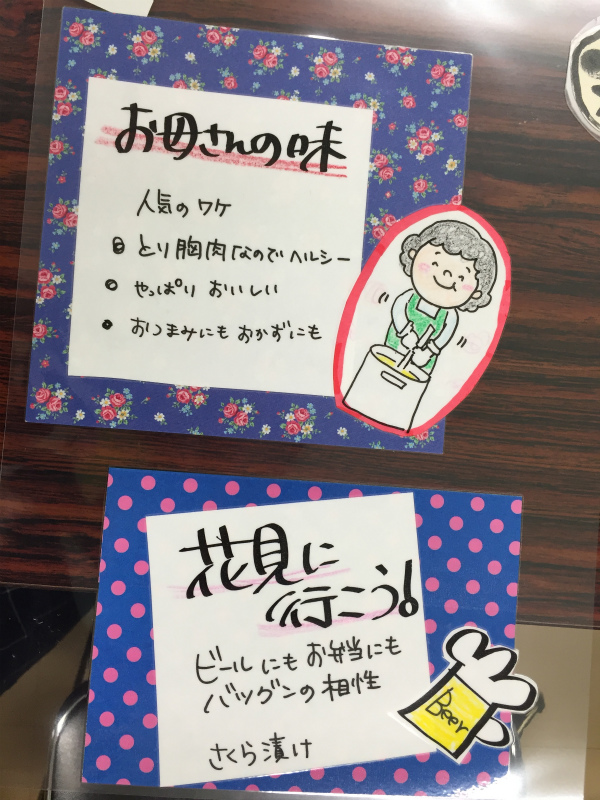 お母さんの味
人気のワケ
とり胸肉なのでヘルシー
やっぱり おいしい
おつまみにも おかずにも
花見に
行こう!
ビールにも お弁当にも
バツグンの相性
さくら漬け
Beer